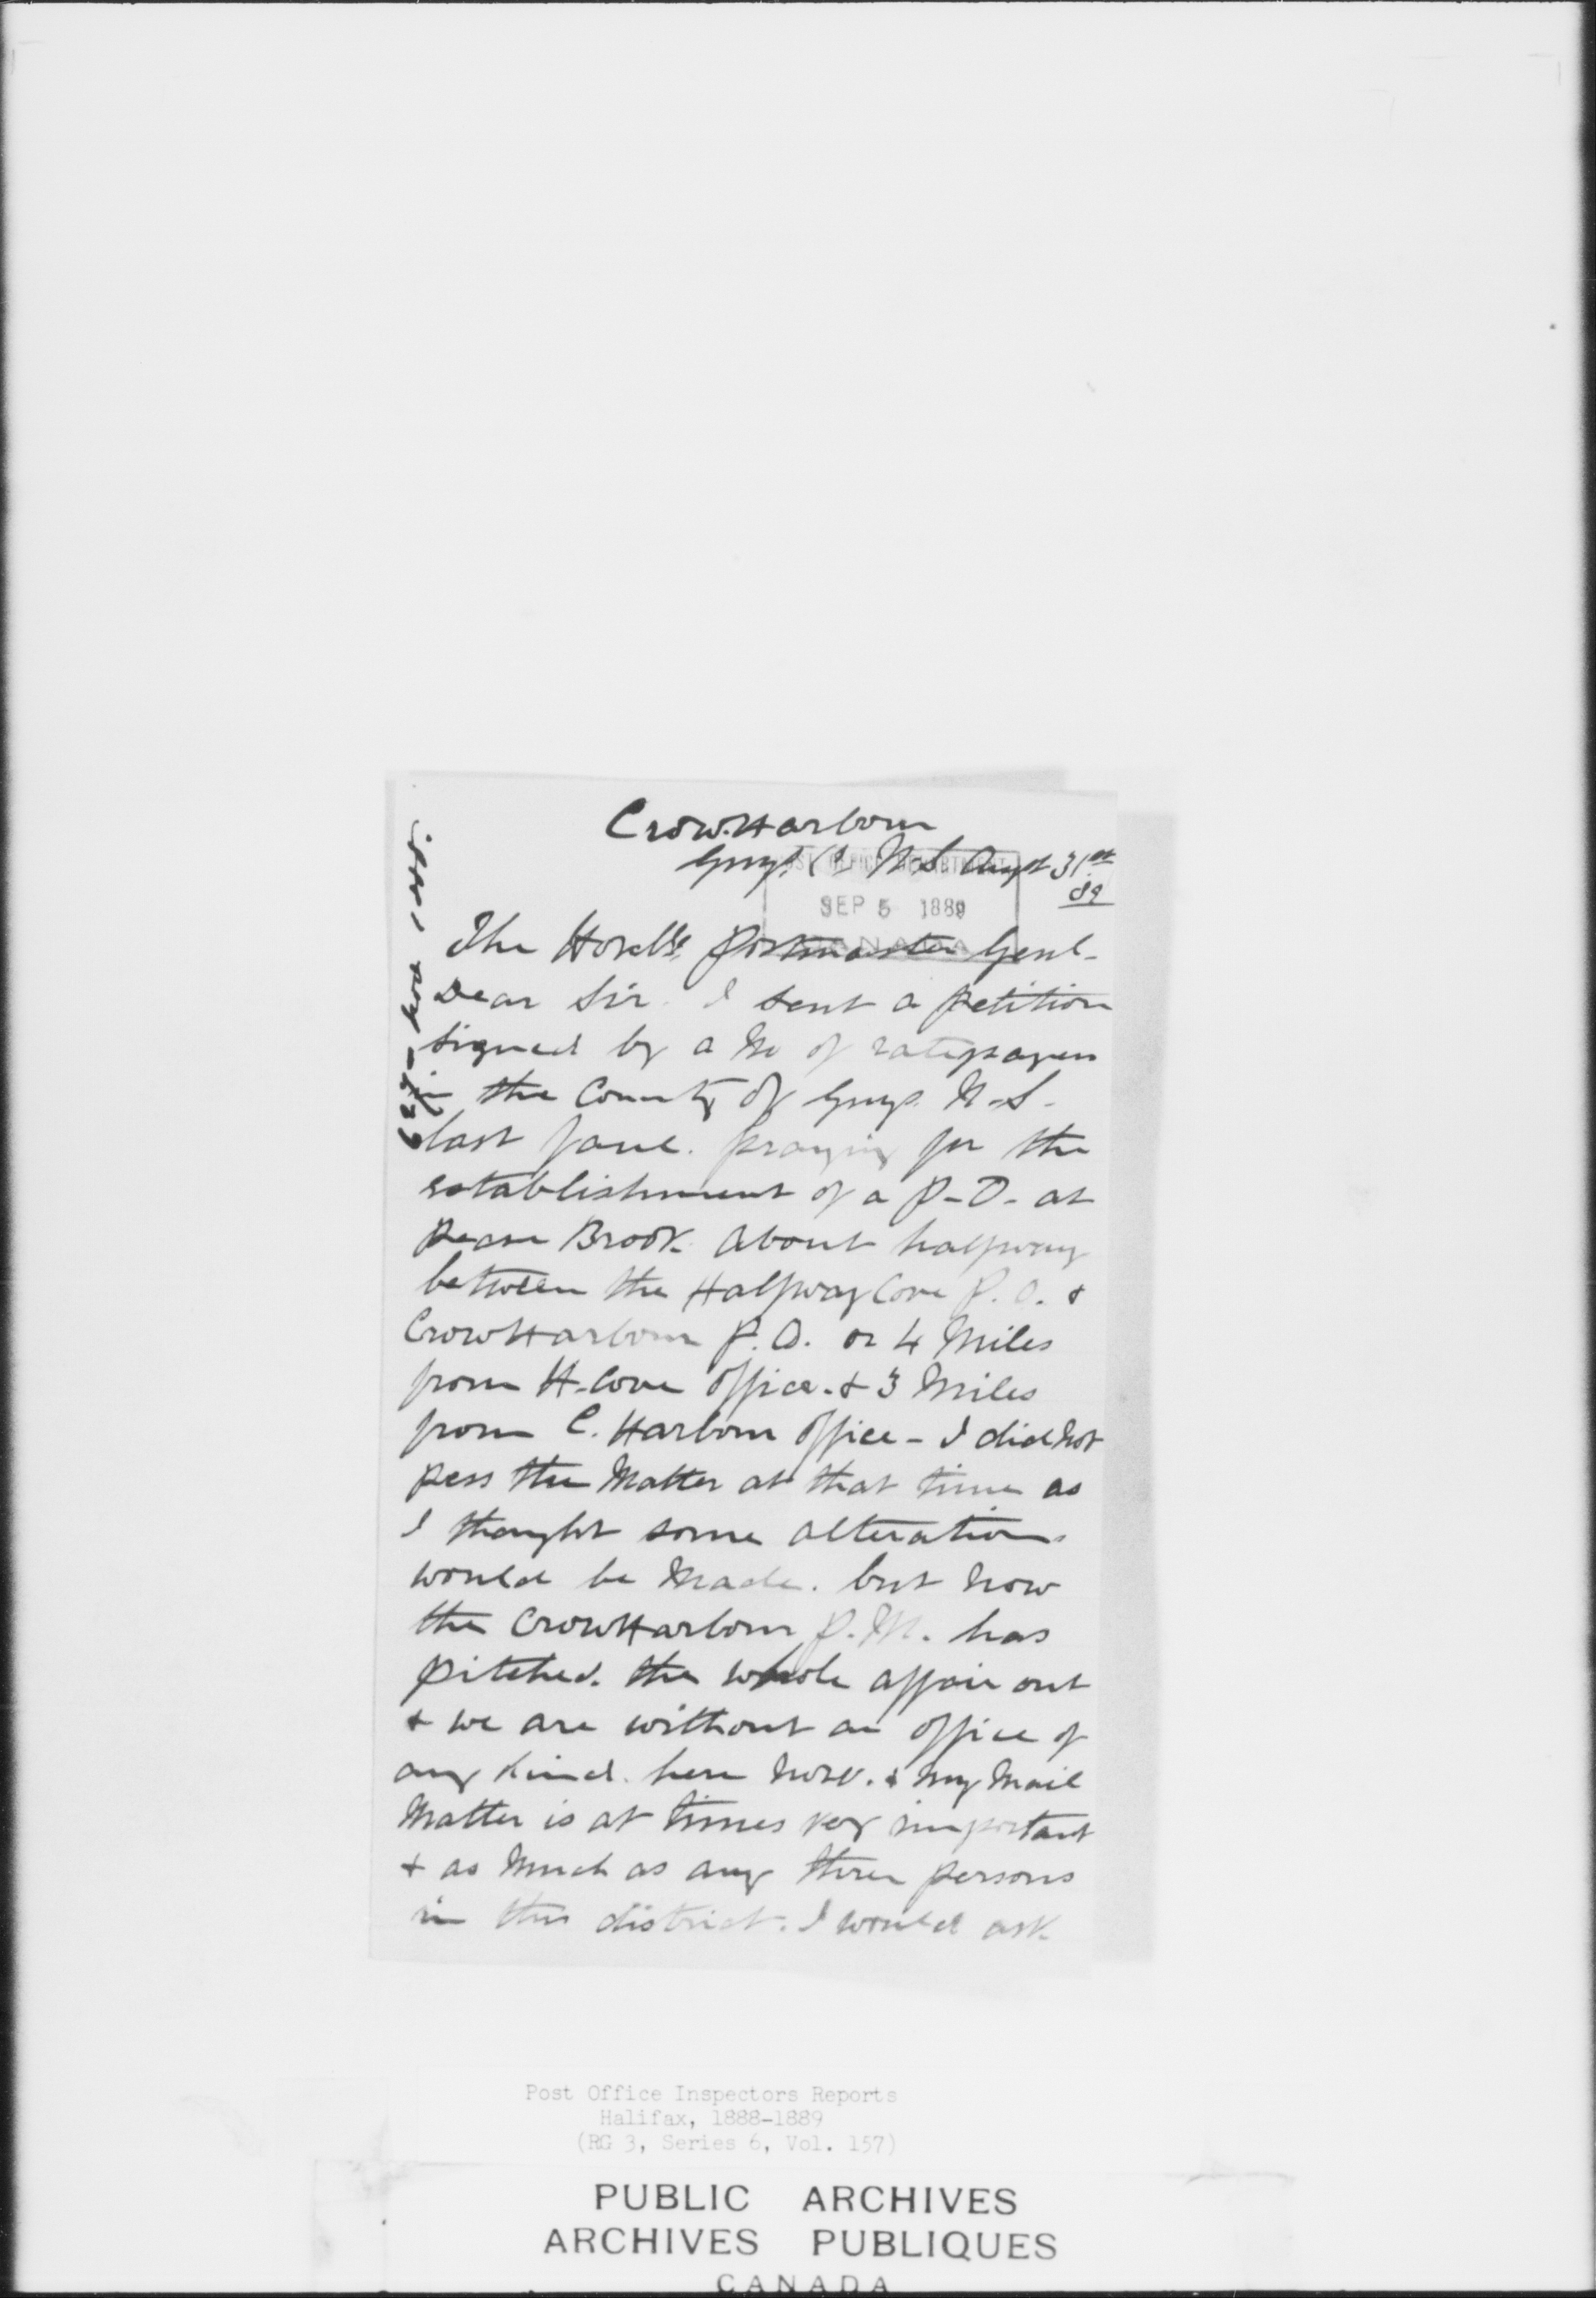 Crow Harbour
Guys. Co N.S. Augst 31st
89
POST OFFICE DEPARTMENT
SEP 5 1889
CANADA
The Honble. Postmaster Genl-
Dear Sir. I sent a petition
signed by a No of ratepayers
in the County of Guys. N.S.
last June. praying for the
establishment of a P-O- at
Brook. about halfway
between the Halfway Cove P.O. &
Crow Harbour P.O. or 4 Miles
from H. Cove Office. & 3 Miles
from C. Harbour Office - I did not
pess the Matter at that time as
I thought some alteration
would be Made. but now
the Crow Harbour P.M. has
pitched. the whole affair out
& we are without an office of
any kind. here now. & my Mail
Matter is at times very important
& as Much as any three persons
in this district. I would ask
Post Office Inspectors Reports
Halifax, 1888-1889
(RG 3, Series 6, Vol. 157)
PUBLIC ARCHIVES
ARCHIVES PUBLIQUES
CANADA